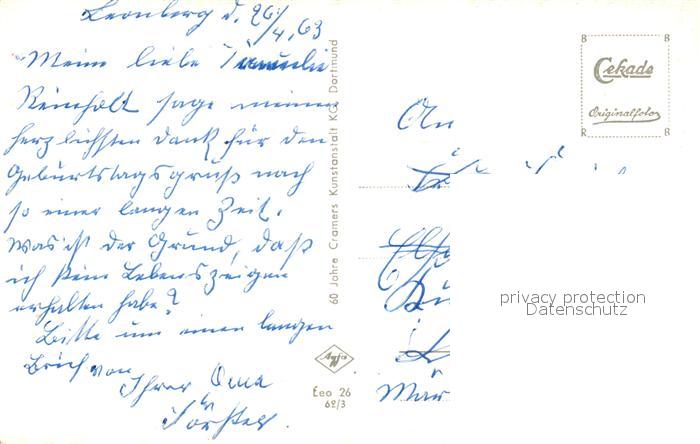 Leonberg d. 26/4. 63
Meine liebe Familie
Reinholt sage meinen
herzlichsten Dank für den
Geburtstagsgruß nach
so einer langen Zeit.
Was ist der Grund, daß
ich kein Lebenszeichen
erhalten habe?
Bitte um einen langen
Brief von
Ihrer Oma
60 Jahre Cramers Kunstanstalt KG, Dortmund
Agfa
Leo 26
62/3
B B
Cekade
Originalfoto
R R
An
privacy protection
Datenschutz